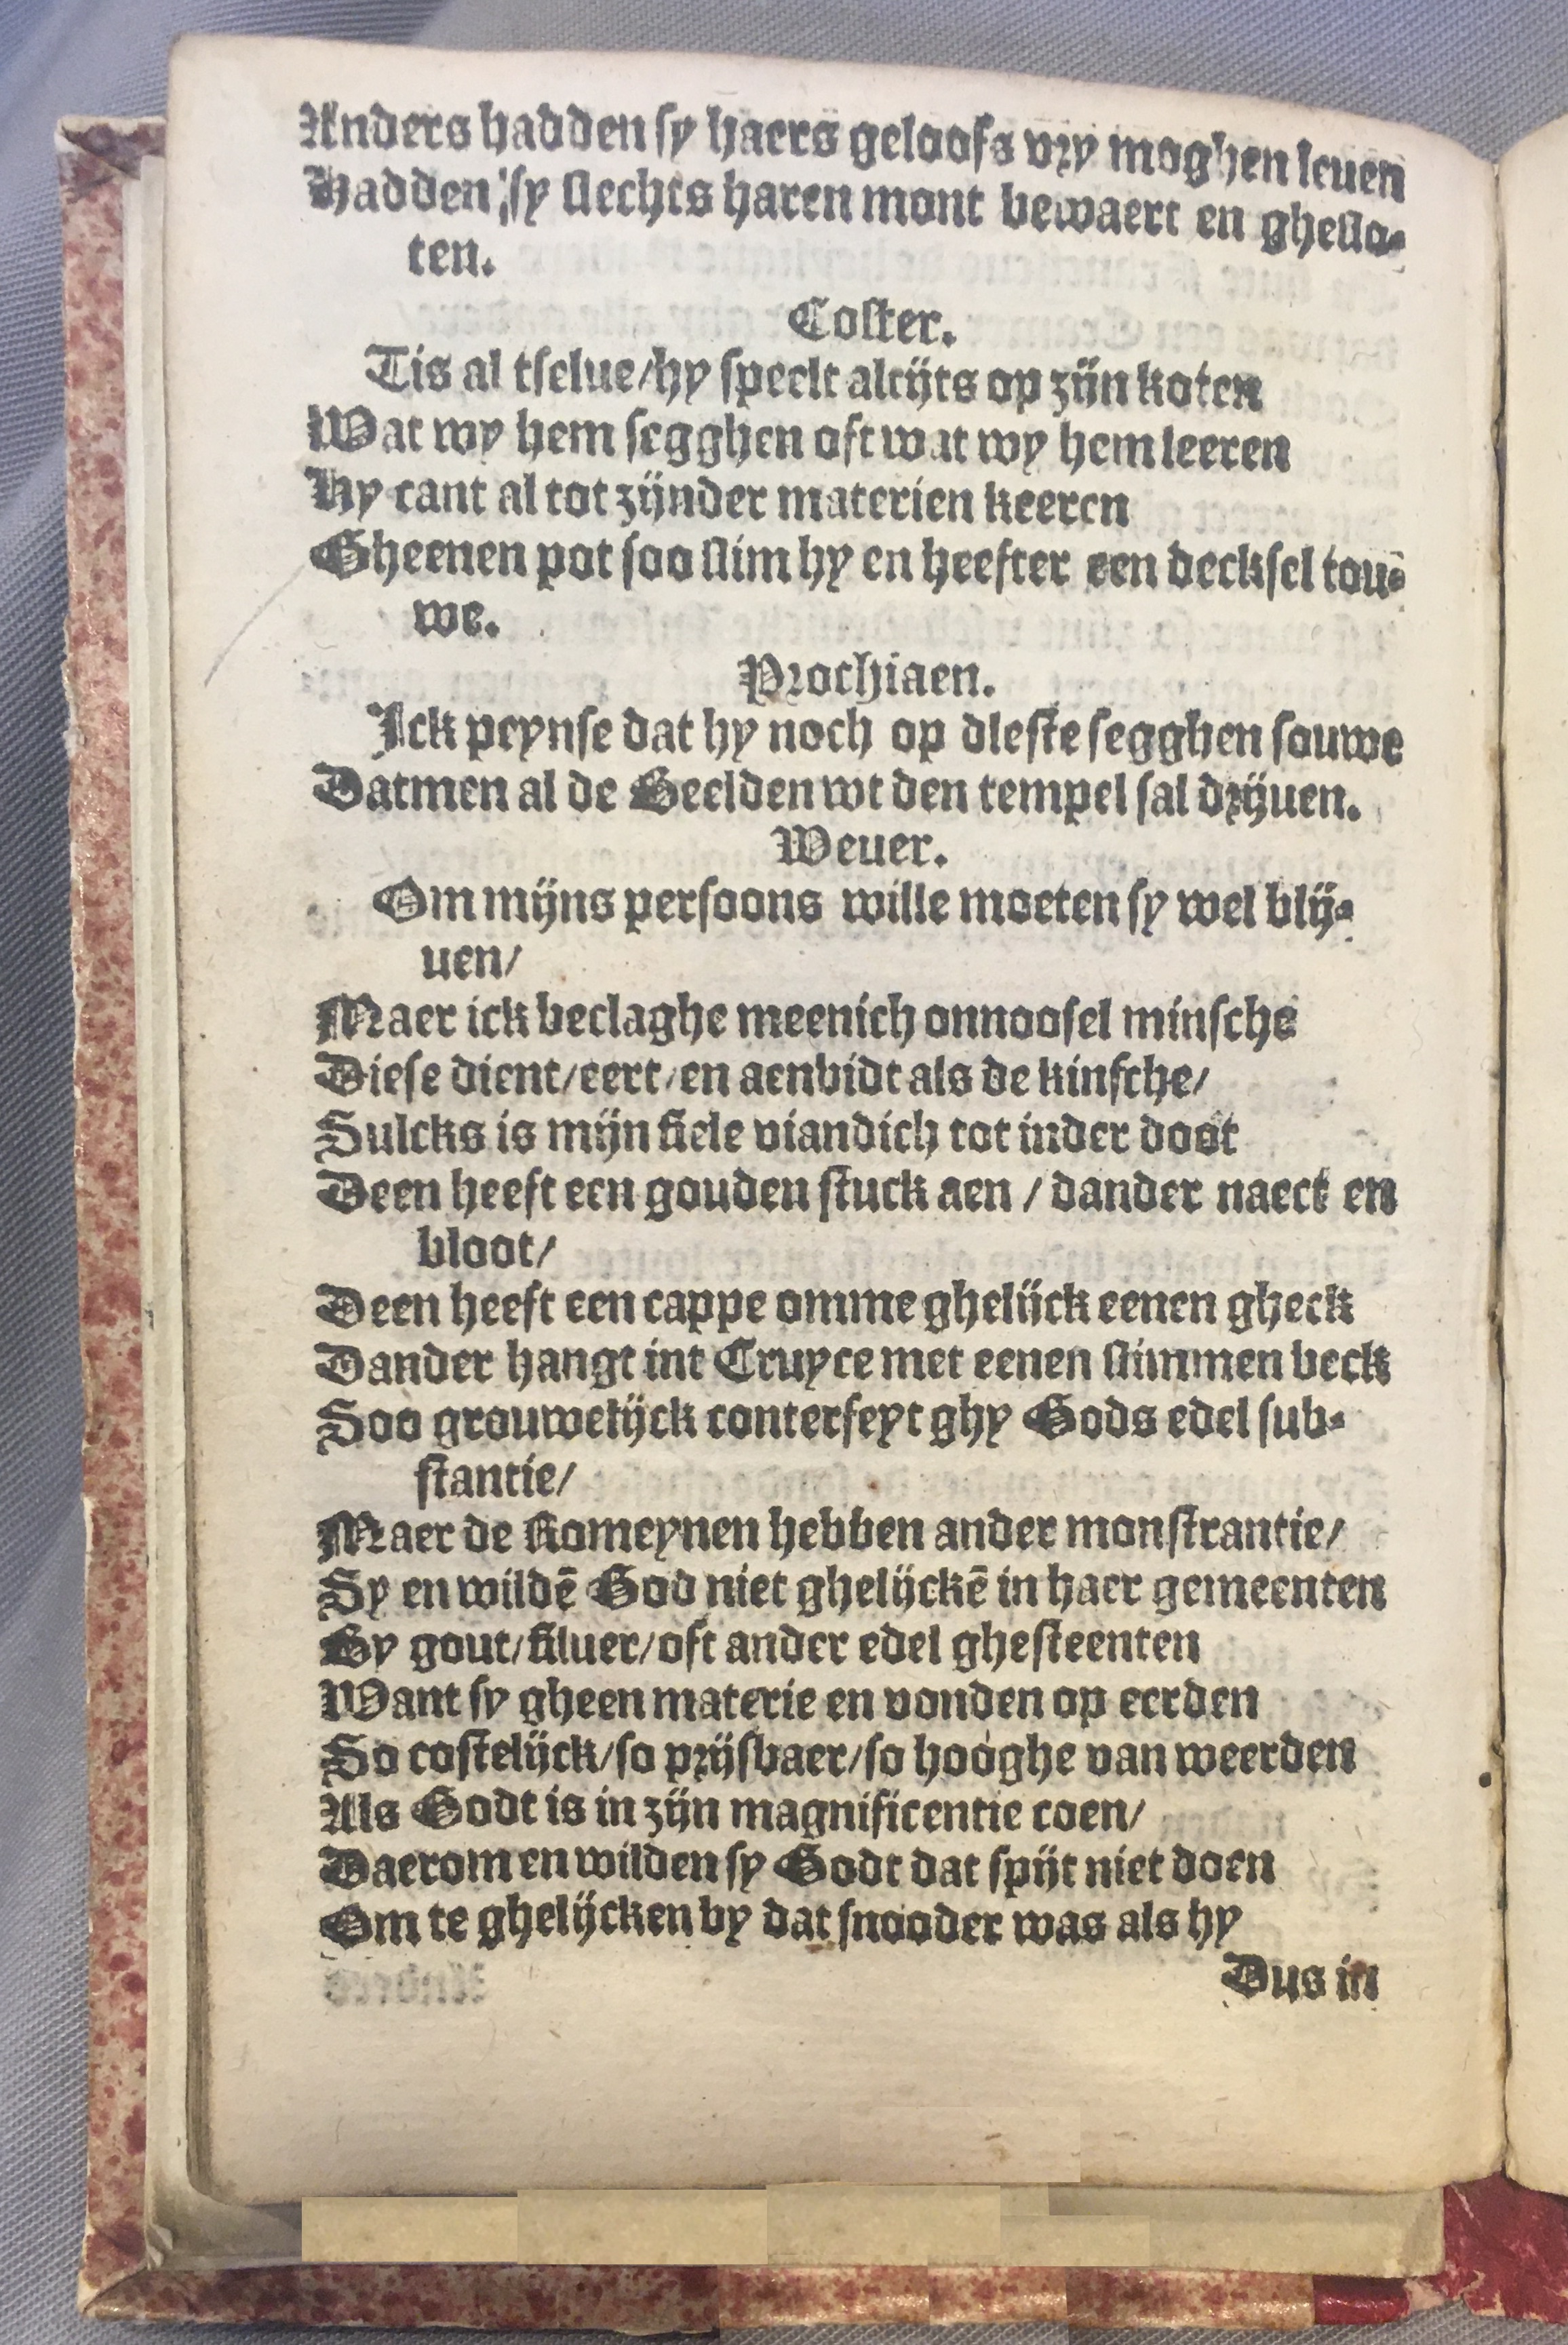 Anders hadden sy haers geloofs vry moghen leuen
Hadden sy slechts haren mont bewaert en gheslo-
ten.
Coster.
Tis al tselue/hy speelt altijts op zijn koten
Wat wy hem segghen oft wat wy hem leeren
Hy cant al tot zijnder materien keeren
Gheenen pot soo slim hy en heefter een decksel tou-
we.
Prochiaen.
Ick peynse dat hy noch op dleste segghen souwe
Datmen al de Beelden wt den tempel sal drijuen.
Weuer.
Om mijns persoons wille moeten sy wel blij-
uen/
Maer ick beclaghe meenich onnoosel minsche
Diese dient/eert/en aenbidt als de kinsche/
Sulcks is mijn siele viandich tot inder doot
Deen heeft een gouden stuck aen / dander naect en
bloot/
Deen heeft een cappe omme ghelijck eenen gheck
Dander hangt int Cruyce met eenen slimmen beck
Soo grouwelijck conterfeyt ghy Gods edel sub-
stantie/
Maer de Romeynen hebben ander monstrantie/
Sy en wildē God niet ghelijckē in haer gemeenten
By gout/siluer/oft ander edel ghesteenten
Want sy gheen materie en vonden op eerden
So costelijck/so prijsbaer/so hooghe van weerden
Als Godt is in zijn magnificentie coen/
Daerom en wilden sy Godt dat spijt niet doen
Om te ghelijcken by dat snooder was als hy
Dus in